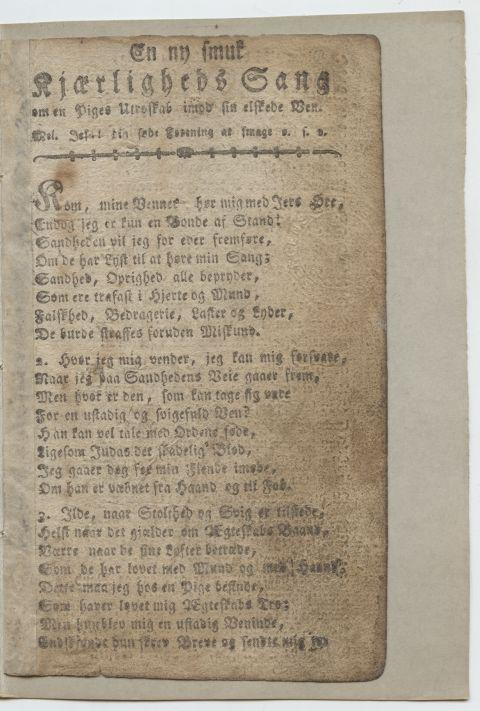 En ny smuk
Kjærligheds Sang
om en Piges Utroskab imod sin elskede Ven.
Mel. Jesu din søde Forening at smage o. s. v.
Kom, mine Venner hør mig med Jers Øre,
Endog jeg er kun en Bonde af Stand!
Sandheden vil jeg for eder fremføre,
Om de har Lyst til at høre min Sang;
Sandhed, Oprighed alle bepryder,
Som ere trofast i Hjerte og Mund,
Falskhed, Bedragerie, Laster og Lyder,
De burde straffes foruden Miskund.
2. Hvor jeg mig vender, jeg kan mig forsvare,
Naar jeg paa Sandhedens Veie gaaer frem,
Men hvor er den, som kan tage sig vare
For en ustadig og svigefuld Ven?
Han kan vel tale med Ordene søde,
Ligesom Judas det skadelig Blod,
Jeg gaaer dog for min Fiende imøde,
Om han er væbnet fra Haand og til Fod.
3. Ilde, naar Stolthed og Svig er tilstede,
Helst naar det gjælder om Ægteskabs Baand,
Værre naar de sine Løfter betræde,
Som de har lovet med Mund og med Haand;
Dette maa jeg hos en Pige befinde,
Som haver lovet mig Ægteskabs Tro;
Men hun blev mig en ustadig Veninde,
Endskjøndt hun skrev Breve og sendte mig